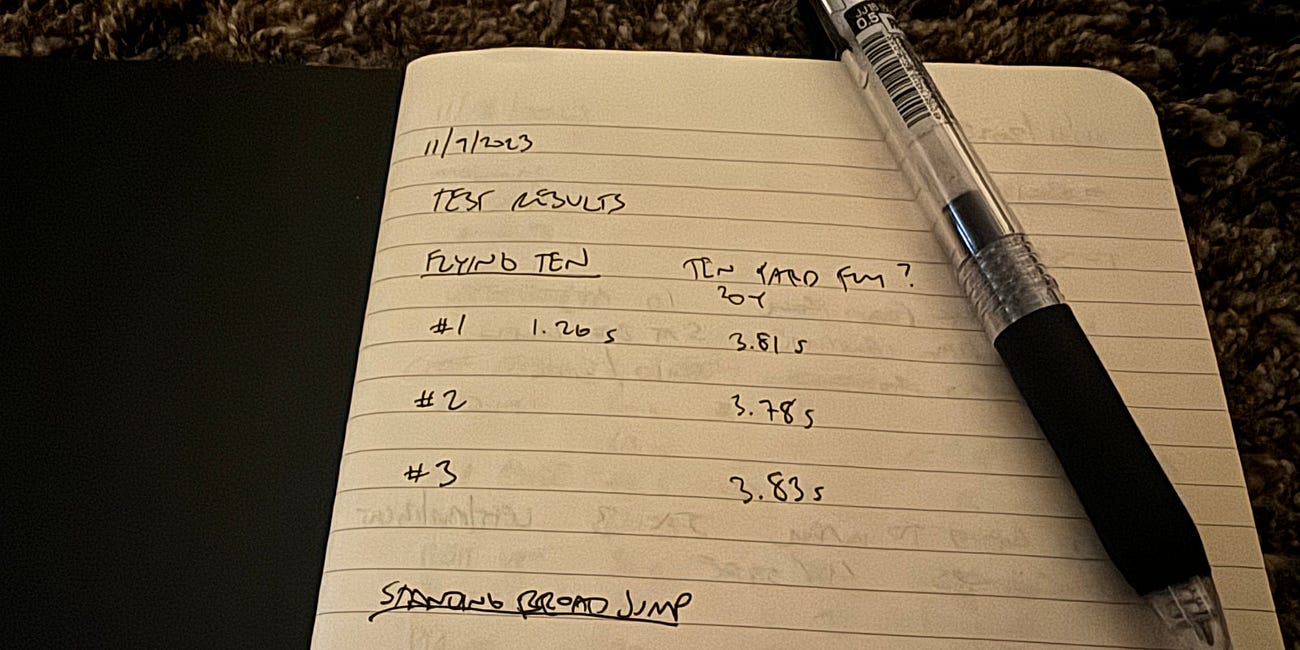 JJ15
0.5
11/7/2023
TEST RESULTS
FLYING TEN TEN YARD FLY?
20Y
#1 1.26 s 3.81 s
#2 3.78 s
#3 3.83 s
STANDING BROAD JUMP